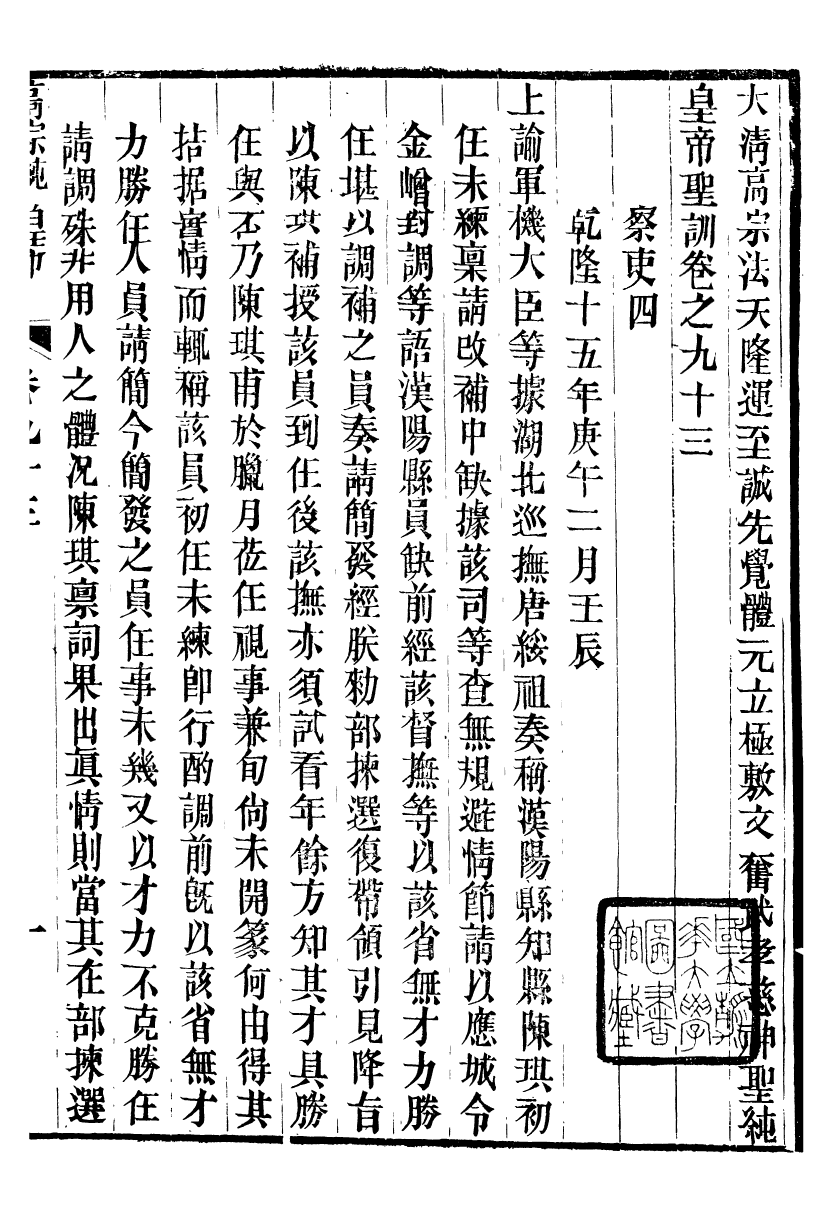 大清高宗法天隆運至誠先覺體元立極敷文奮武孝慈神聖純
皇帝聖訓卷之九十三
察吏四
乾隆十五年庚午二月壬辰
上諭軍機大臣等據湖北巡撫唐綏祖奏稱漢陽縣知縣陳琪初
任未練稟請改補中缺據該司等查無規避情節請以應城令
金嶒對調等語漢陽縣員缺前經該督撫等以該省無才力勝
任堪以調補之員奏請簡發經朕勑部揀選復帶領引見降旨
以陳琪補授該員到任後該撫亦須試看年餘方知其才具勝
任與否乃陳琪甫於臘月莅任視事兼旬尚未開篆何由得其
拮据實情而輒稱該員初任未練卽行酌調前旣以該省無才
力勝任人員請簡今簡發之員任事未幾又以才力不克勝任
請調殊非用人之體況陳琪稟詞果出眞情則當其在部揀選
高宗純皇帝
卷九十三
一
國立清華大學圖書館藏